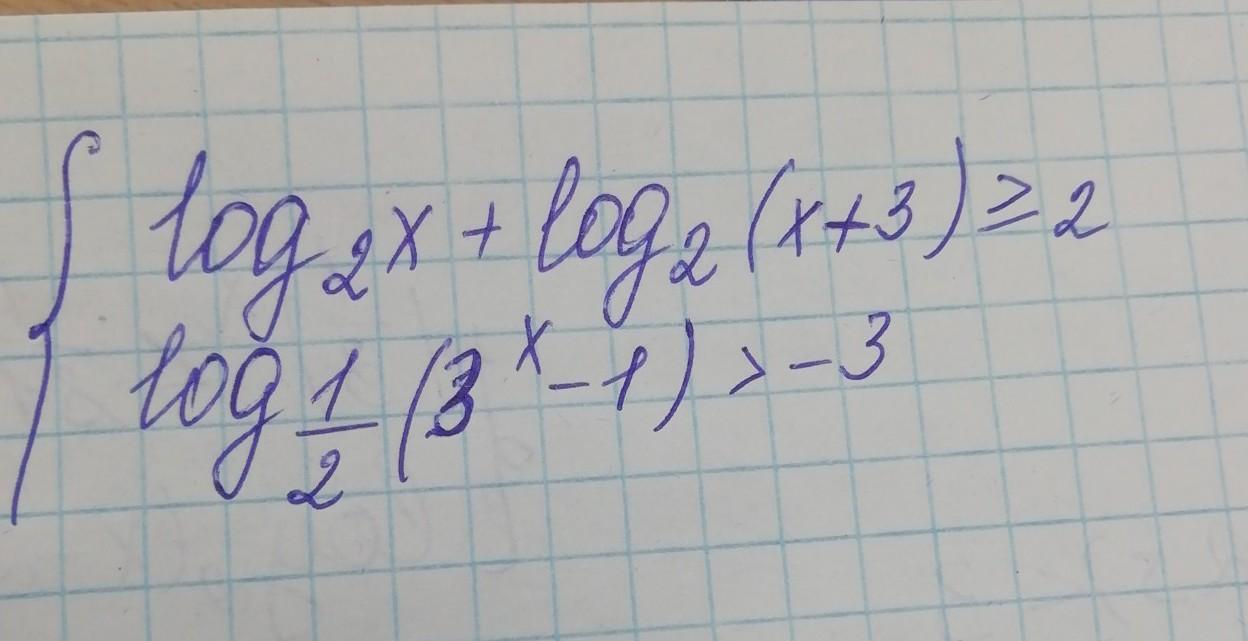 log₂x + log₂(x+3) ≥ 2
log_{1/2}(3ˣ-1) > -3